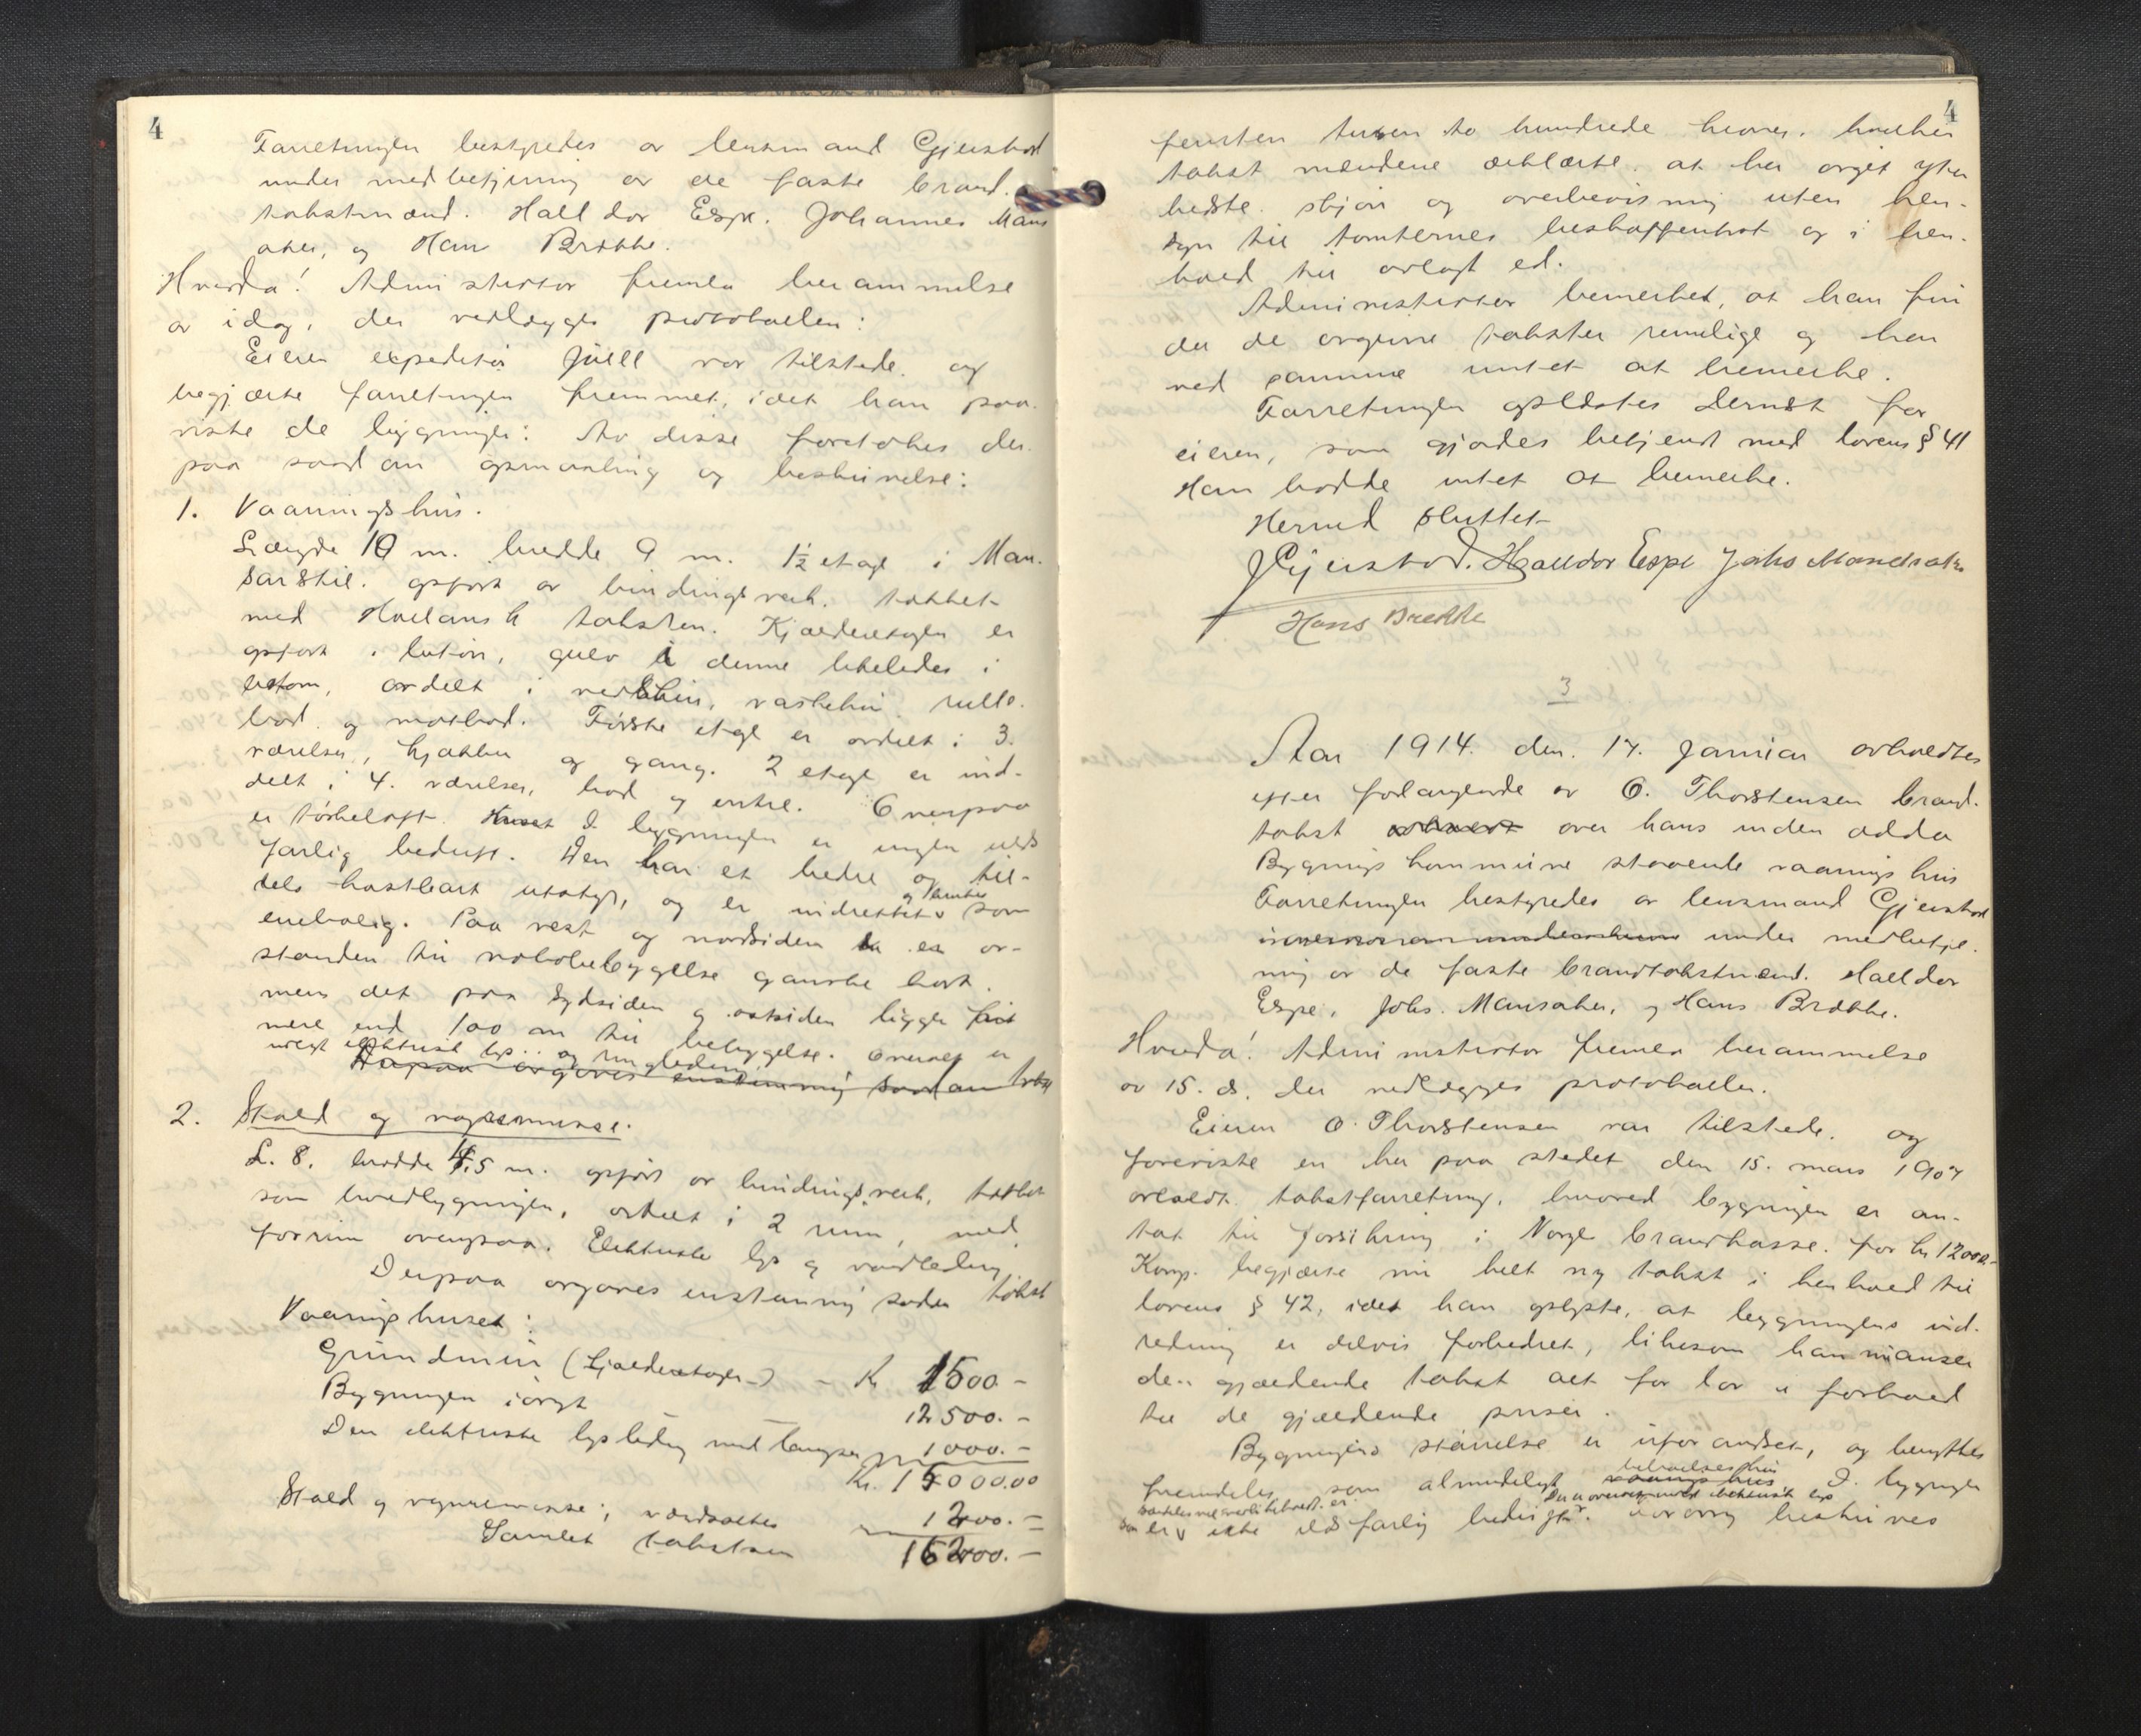 4
Forretningen bestyredes av lensmand Gjerstad
under medbetjening av de faste brand-
takstmænd. Halldor Espe. Johannes Mans
aker, og Hans Brække.
Hvorda! Administrator fremla berammelse
av idag, der vedlægges protokollen:
Eieren expeditør Juell var tilstede. og
begjærte forretningen fremmet, idet han paa-
viste de bygninger: Av disse foretokes der-
paa saadan opmaaling og beskrivelse:
1. Vaaningshus.
Længde 10 m. bredde 9 m. 1½ etage i Man-
sardstil. opført av bindingsverk. tækket
med Hollansk taksten. Kjælderetagen er
opført i beton, gulv i denne likeledes i
beton, avdelt i vedskur, vaskehus. rulle-
bod. og matbod. Første etage er avdelt i 3.
værelser, kjøkken og gang. 2 etage er ind-
delt i 4. værelser, bod og entre. Ovenpaa
er tørkeloft. Huset I bygningen er ingen ilds
farlig bedrift. Den har et bedre og til-
dels kostbart utstyr, og er indrettet og benttes som
enebolig. Paa vest og nordsiden er av-
standen til nabobebyggelse ganske kort.
mens det paa sydsiden og østsiden ligger frit
mere end 100 m til bebyggelse. Overalt er
indlagt elektrisk lys og ringledning.
Derpaa avgaves enstemmig saadan takst
2. Stald og vognremisse.
L. 8. bredde 4.5 m. opført av bindingsverk, tækket
som hovedbygningen, avdelt i 2 rum, med
forrum ovenpaa. Elektriske lys og vandledning
Derpaa avgaves enstemmig saadan takst
Vaaningshuset:
Grundmur (kjælderetagen) - Kr 1500 -
Bygningen iøvrigt 12500. -
Den elektriske lysledning med lamper 1000. -
Kr. 15000.00
Stald og vognremisse; værdsattes 1200. -
Samlet takstsum 16200. -
4
femten tusen to hundrede kroner. hvorhen
takst mændene erklærte. at ha avgit efter
bedste skjøn og overbevisning uten hen-
syn til tomternes beskaffenhet og i hen-
hold til avlagt ed.
Administrator bemerket, at han fin
der de avgivne takster rimelige og har
ved samme intet at bemerke.
Forretningen oplæstes dernæst for
eieren, som gjordes bekjendt med lovens § 41
Han hadde intet at bemerke.
Hermed sluttet
J Gjerstad. Halldor Espe Johs Mandsaker
Hans Brekke
3
Aar 1914. den. 17. Januar avholdtes
efter forlangende av O. Thorstensen brand-
takst over hans inden Odda
Bygningskommune staaende vaaningshus
Forretningen bestyredes av lensmand Gjerstad
under medbetje-
ning av de faste brandtakstmænd. Halldor
Espe, Johs. Mansaker, og Hans Brække.
Hvorda! Administrator fremla berammelse
av 15. ds. der vedlægges protokollen.
Eieren O. Thorstensen var tilstede. og
foreviste en her paa stedet den 15. mars 1907
avholdt takstforretning, hvorved bygningen er an-
tat til forsikring i Norges brandkasse. for kr 12000.-
Komp. begjærte nu helt ny takst i henhold til
lovens § 42, idet han oplyste, at bygningens ind-
redning er delvis forbedret, likesom han anser
den gjældende takst alt for lav i forhold
til de gjældende priser.
Bygningens størrelse er uforandret, og benyttes
fremdeles som almindeligt vaaningshus beboelseshus I bygningen
Den er overalt med elektrisk lys
er ikke ildsfarlig bedrift. beskrives